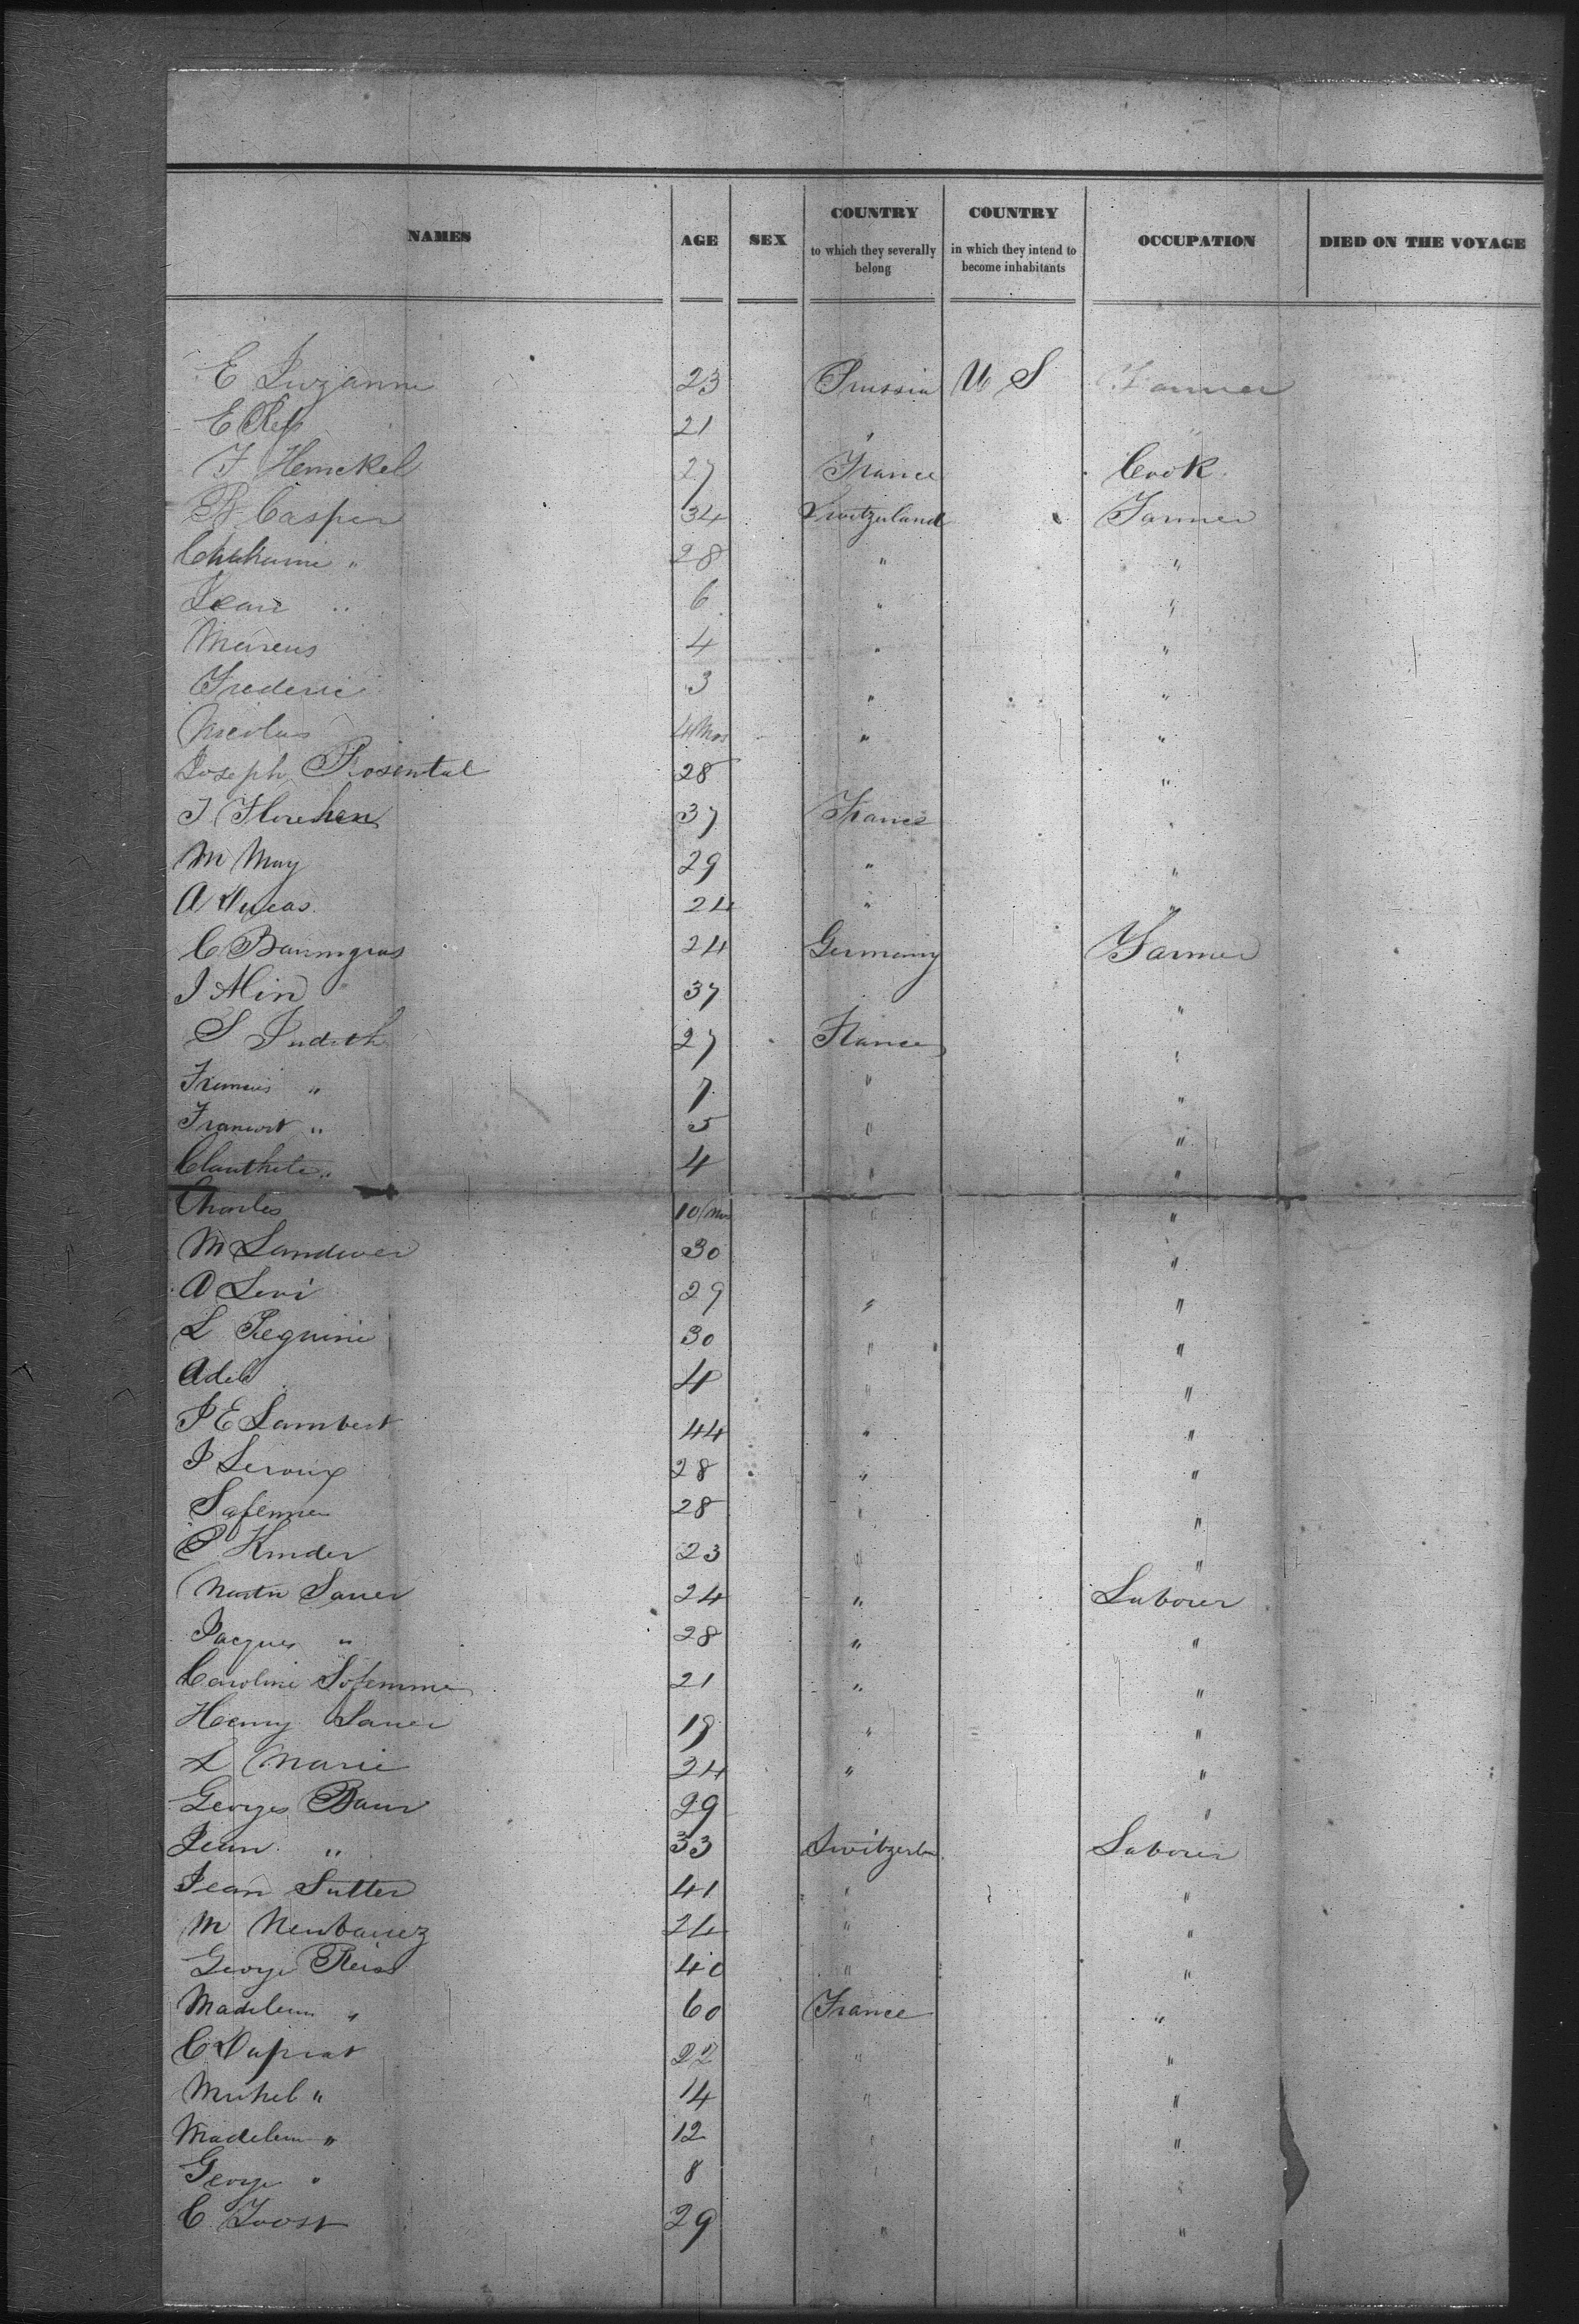 NAMES AGE SEX COUNTRY to which they severally belong COUNTRY in which they intend to become inhabitants OCCUPATION DIED ON THE VOYAGE
E Suzanne 23 Prussia U S Farmer
E 21 "
F Henckel 27 France Cook
B Casper 34 Switzerland Farmer
" 28 " "
Jean " 6 " "
Marcus 4 " "
Frederic 3 " "
Nicolas 4 Mos " "
Joseph Rosental 28 "
J 37 France "
M May 29 " "
A Lucas 24 " "
C Baumgras 24 Germany Farmer
J Alin 37 "
S Judith 27 France "
Francois " 7 " "
" 5 " "
" 4 " "
Charles 10 Mos " "
M Landwer 30 " "
A Levi 29 " "
L Reguine 30 " "
Adele 4 " "
P E Lambert 44 " "
P Leroux 28 " "
Safemme 28 " "
P Kinder 23 " "
Martin Sauer 24 " Laborer
Jacques " 28 " "
Caroline Safemme 21 " "
Henry Sauer 19 " "
L Marie 24 " "
Georges Baur 29 "
Jean " 33 Switzerlan Laborer
Jean Sutter 41 " "
M Neubauez 24 " "
George Reiss 40 " "
Madeleine " 60 France "
C Duprat 22 " "
Michel " 14 " "
Madeleine " 12 " "
George " 8 " "
C Joost 29 " "